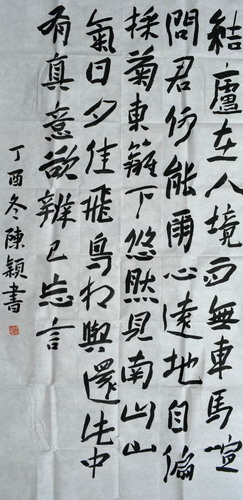 結廬在人境而無車馬喧
問君何能爾心遠地自偏
採菊東籬下悠然見南山山
氣日夕佳飛鳥相與還此中
有真意欲辨已忘言
丁酉冬陳穎書